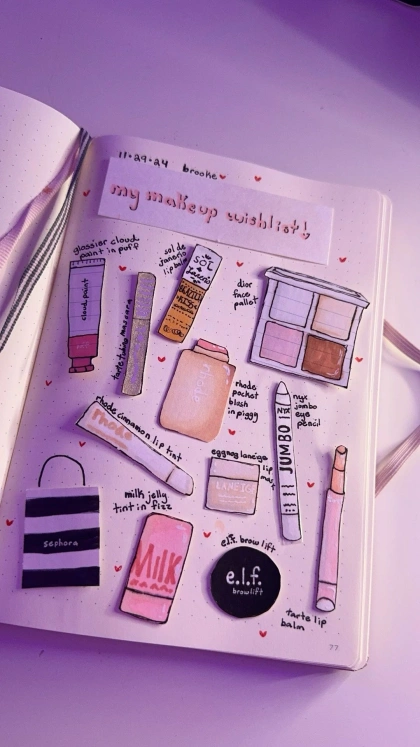 11·29·24 brooke
my makeup wishlist!
glossier cloud
paint in puff
cloud paint
tarte tubing mascara
sol de
janerio
lip balm
SOL
de
Janeiro
dior
face
pallet
rhode
pocket
blush
in piggy
NYX
JUMBO
nyx
jumbo
eye
pencil
rhode cinnamon lip tint
rhode
eggnog laneige
lip
mask
LANEIGE
sephora
milk jelly
tint in fizz
Milk
e.l.f. brow lift
e.l.f.
browlift
tarte lip
balm
77